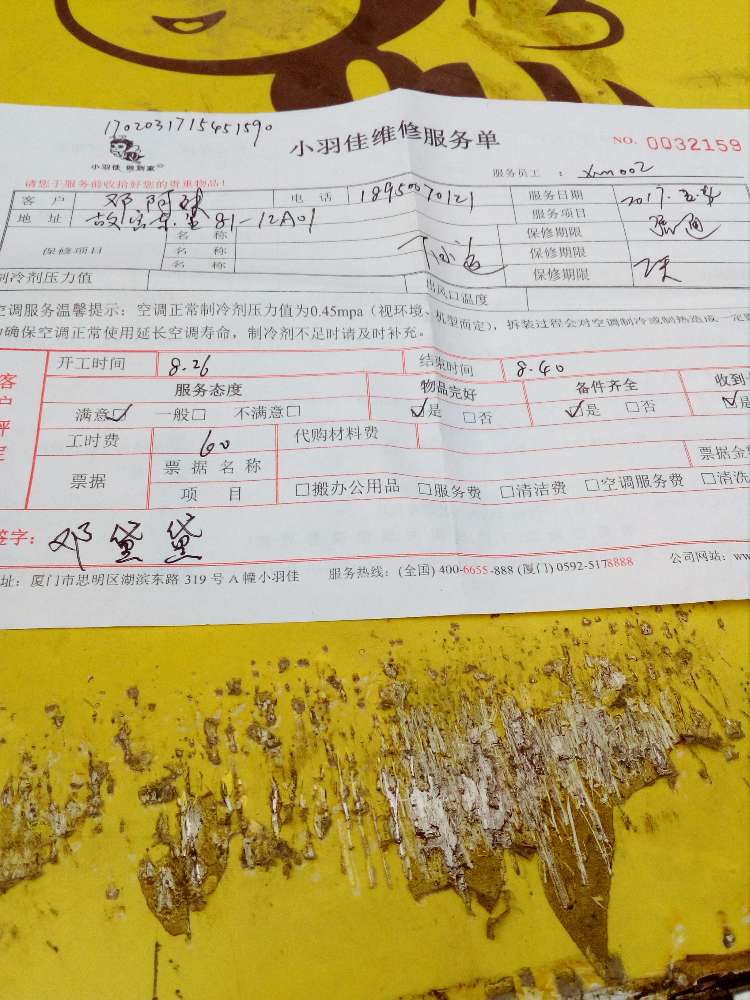 1702031715451590
小羽佳维修服务单
NO. 0032159
小羽佳 做到家
服务员工 : xm002
请您于服务前收拾好您的贵重物品!
客 户 邓阿妹 电 话 18950070121 服务日期 2017.
地 址 81-12A01 服务项目
保修项目 名 称 保修期限
名 称 保修期限
名 称 保修期限
制冷剂压力值 出风口温度
空调服务温馨提示:空调正常制冷剂压力值为0.45mpa(视环境、机型而定),拆装过程会对空调制冷或制热造成一定
确保空调正常使用延长空调寿命,制冷剂不足时请及时补充。
开工时间 8.26 结束时间 8.40
服务态度 物品完好 备件齐全 收到
满意☑ 一般□ 不满意□ ☑是 □否 ☑是 □否 ☑是
工时费 60 代购材料费
票据 票 据 名 称 票据金
项 目 □搬办公用品 □服务费 □清洁费 □空调服务费 □清洗
签字: 邓黛黛
址:厦门市思明区湖滨东路 319 号 A 幢小羽佳 服务热线:(全国) 400-6655-888 (厦门) 0592-5178888 公司网站:ww